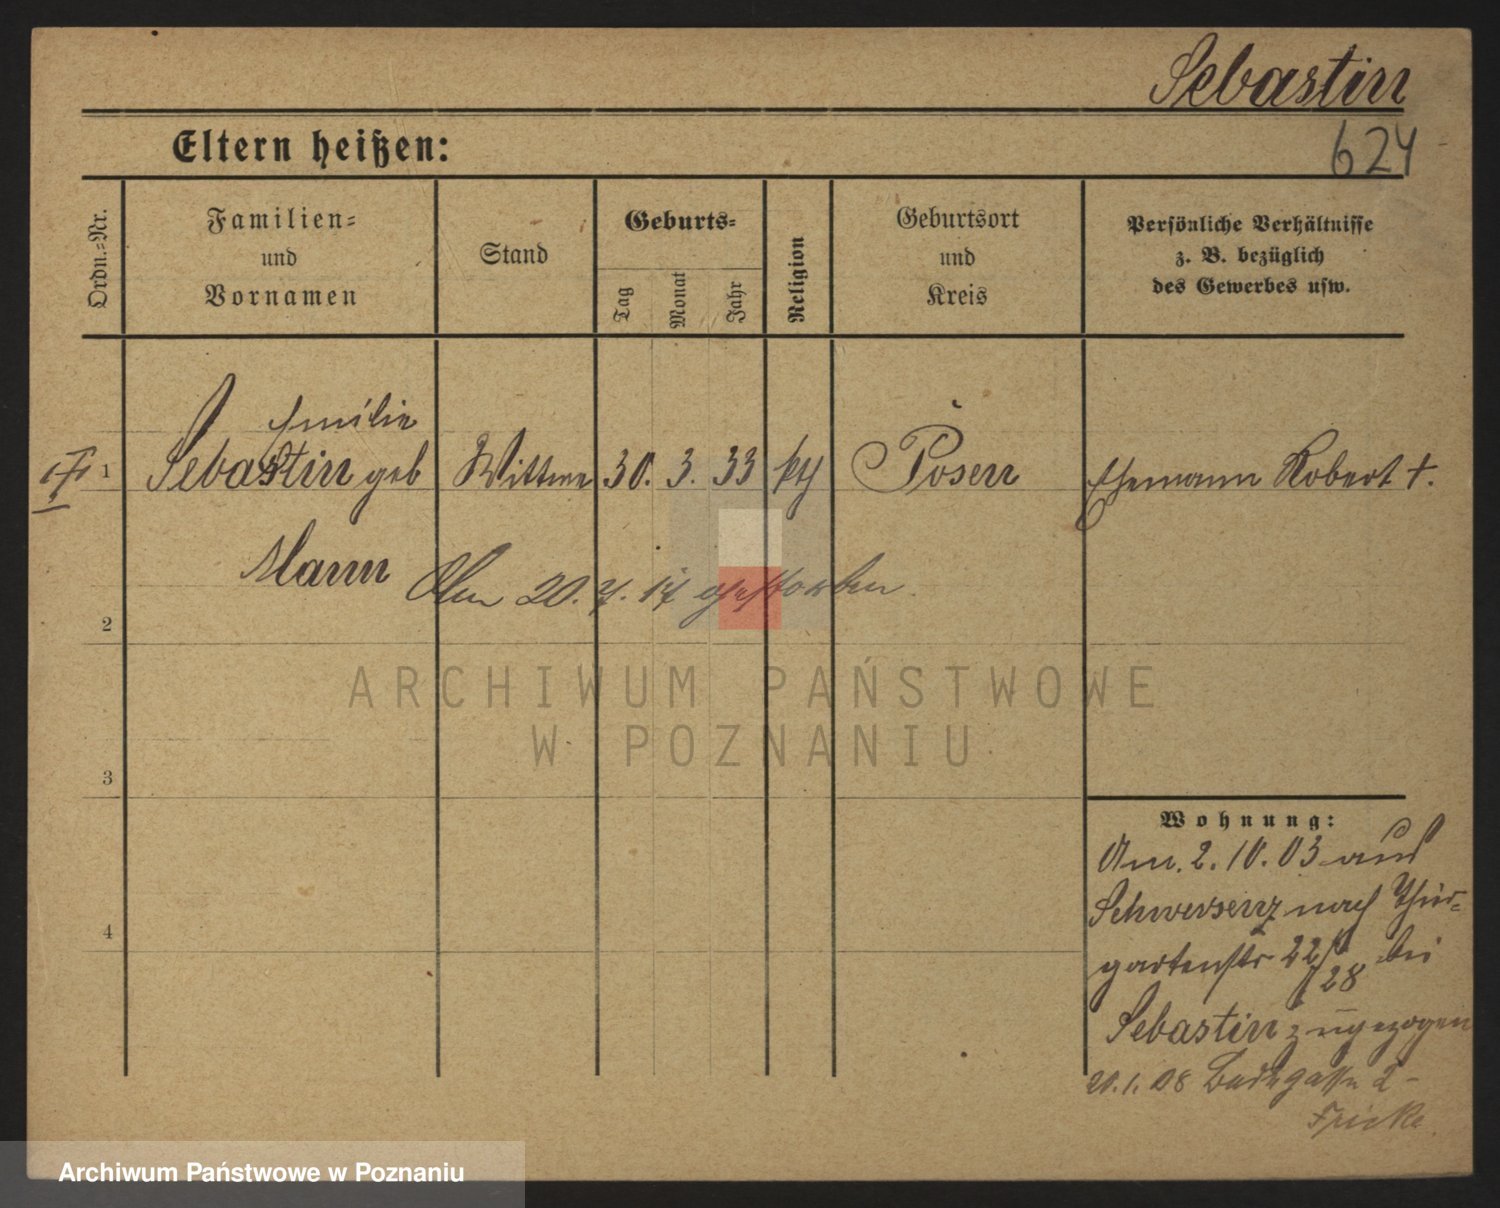 Sebastin
624
Eltern heißen:
Ordn.=Nr.
Familien=
und
Vornamen
Stand
Geburts=
Tag
Monat
Jahr
Religion
Geburtsort
und
Kreis
Persönliche Verhältnisse
z. B. bezüglich
des Gewerbes usw.
Emilie
1 Sebastin geb Wittwe 30. 3. 33 kth Posen Ehemann Robert †.
Mann
Am 20. 7. 17 gestorben.
2
ARCHIWUM PAŃSTWOWE
W POZNANIU
3
4
Wohnung:
Am. 2. 10. 03 aus
Schwersenz nach Thier=
gartenstr 22/ bei
28
Sebastin zugezogen
20. 1. 08
Fricke
Archiwum Państwowe w Poznaniu